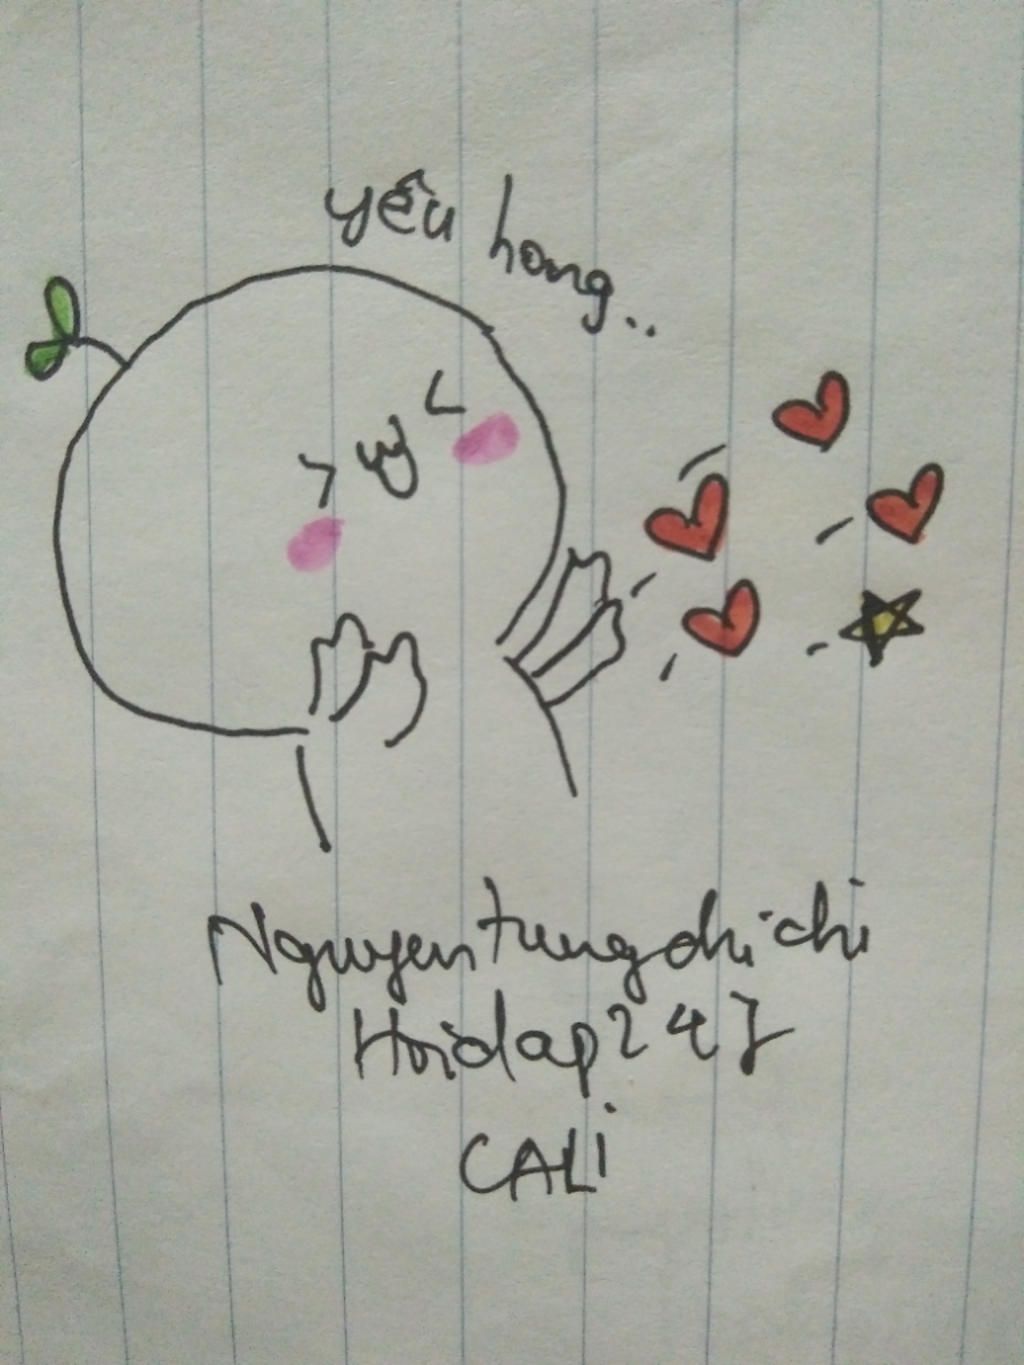 yêu hong..
Nguyentungchichi
Hoidap247
CALi